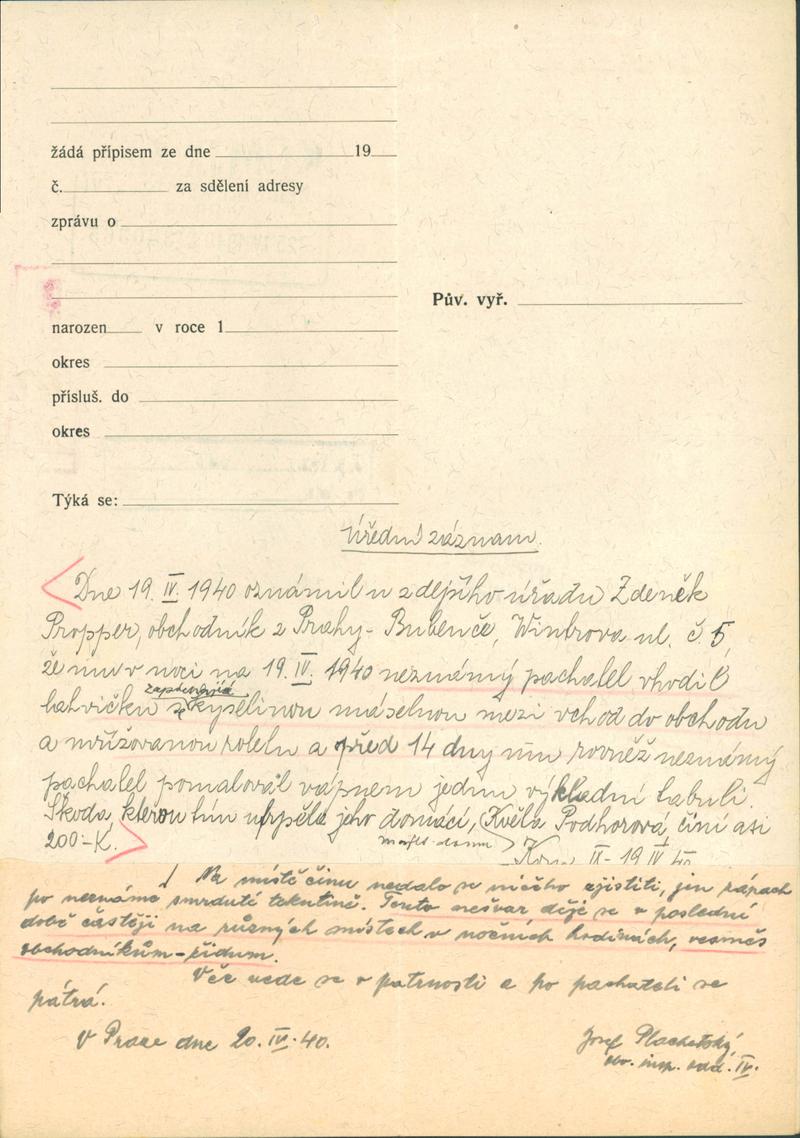 žádá přípisem ze dne 19
č. za sdělení adresy
zprávu o
Pův. vyř.
narozen v roce 1
okres
přísluš. do
okres
Týká se:
Úřední záznam.
Dne 19. IV. 1940 oznámil u zdejšího úřadu Zdeněk
Propper, obchodník z Prahy - Bubenče, Wintrova ul. č 5,
že mu v noci na 19. IV. 1940 neznámý pachatel vhodil
lahvičku s kyselinou máselnou mezi vchod do obchodu
a mřížovanou roletu a před 14 dny mu rovněž neznámý
pachatel pomaloval vápnem jednu výkladní tabuli.
Škoda, kterou tím utrpěla jeho domácí, Květa Podhorová, činí asi
200 K.
IX - 19 IV 40
Na místě činu nedalo se ničeho zjistiti, jen zápach
po neznámé smrduté tekutině. Tento nešvar děje se v poslední
době častěji na různých místech v nočních hodinách, vesměs
obchodníkům - židům.
Věc vede se v patrnosti a po pachateli se
pátrá.
V Praze dne 20. IV. 40.
Josef Plachetský,
obv. insp. odd. IV.